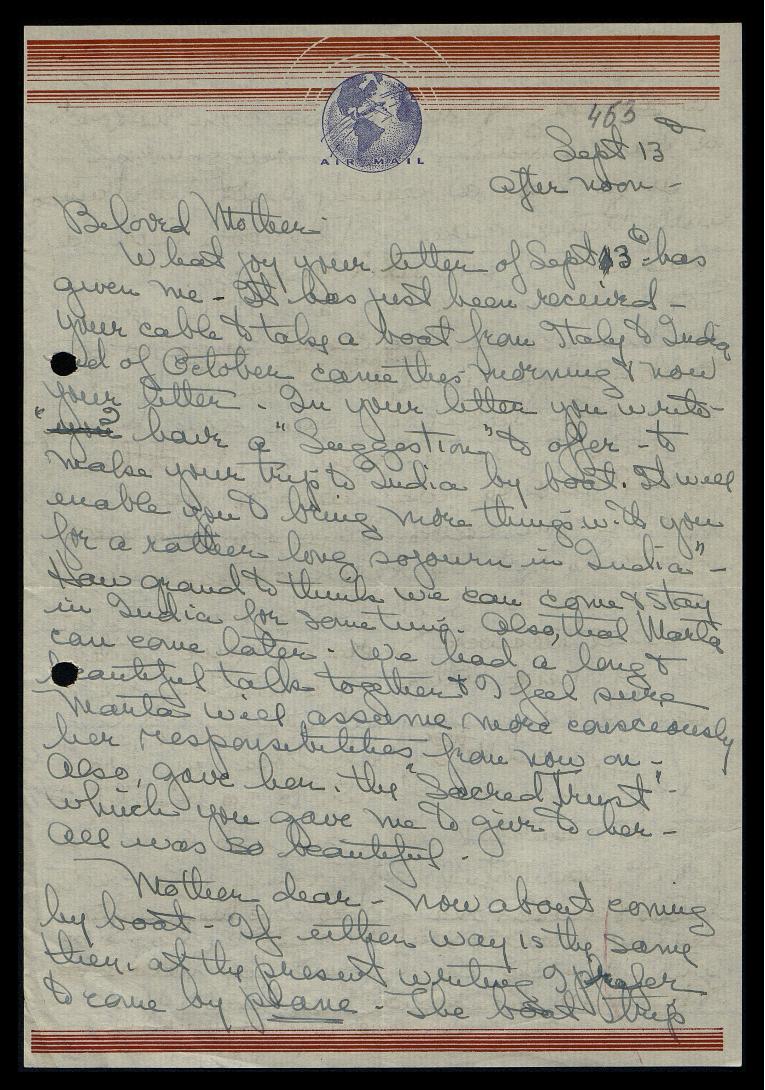 AIR MAIL
463
Sept 13
after noon -
Beloved Mother -
What joy your letter of Sept 13th has
given me - It has just been received -
your cable to take a boat from Italy to India
end of October came this morning & now
your letter. In your letter you write -
"you have a "Suggestion" to offer - to
make your trip to India by boat. It will
enable you to bring more things with you
for a rather long sojourn in India" -
How grand to think we can come & stay
in India for sometime. Also, that Marta
can come later. We had a long &
beautiful talk together & I feel sure
Marta will assume more consciously
her responsibilities from now on -
Also, gave her the "Sacred Trust" -
which you gave me to give to her -
All was so beautiful.
Mother dear - Now about coming
by boat - If either way is the same
then, at the present writing I prefer
to come by plane - The boat trip